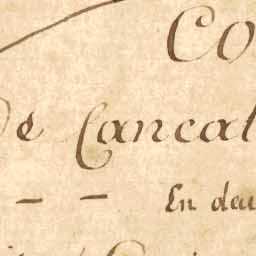 Co
De Cancal
- - En deu